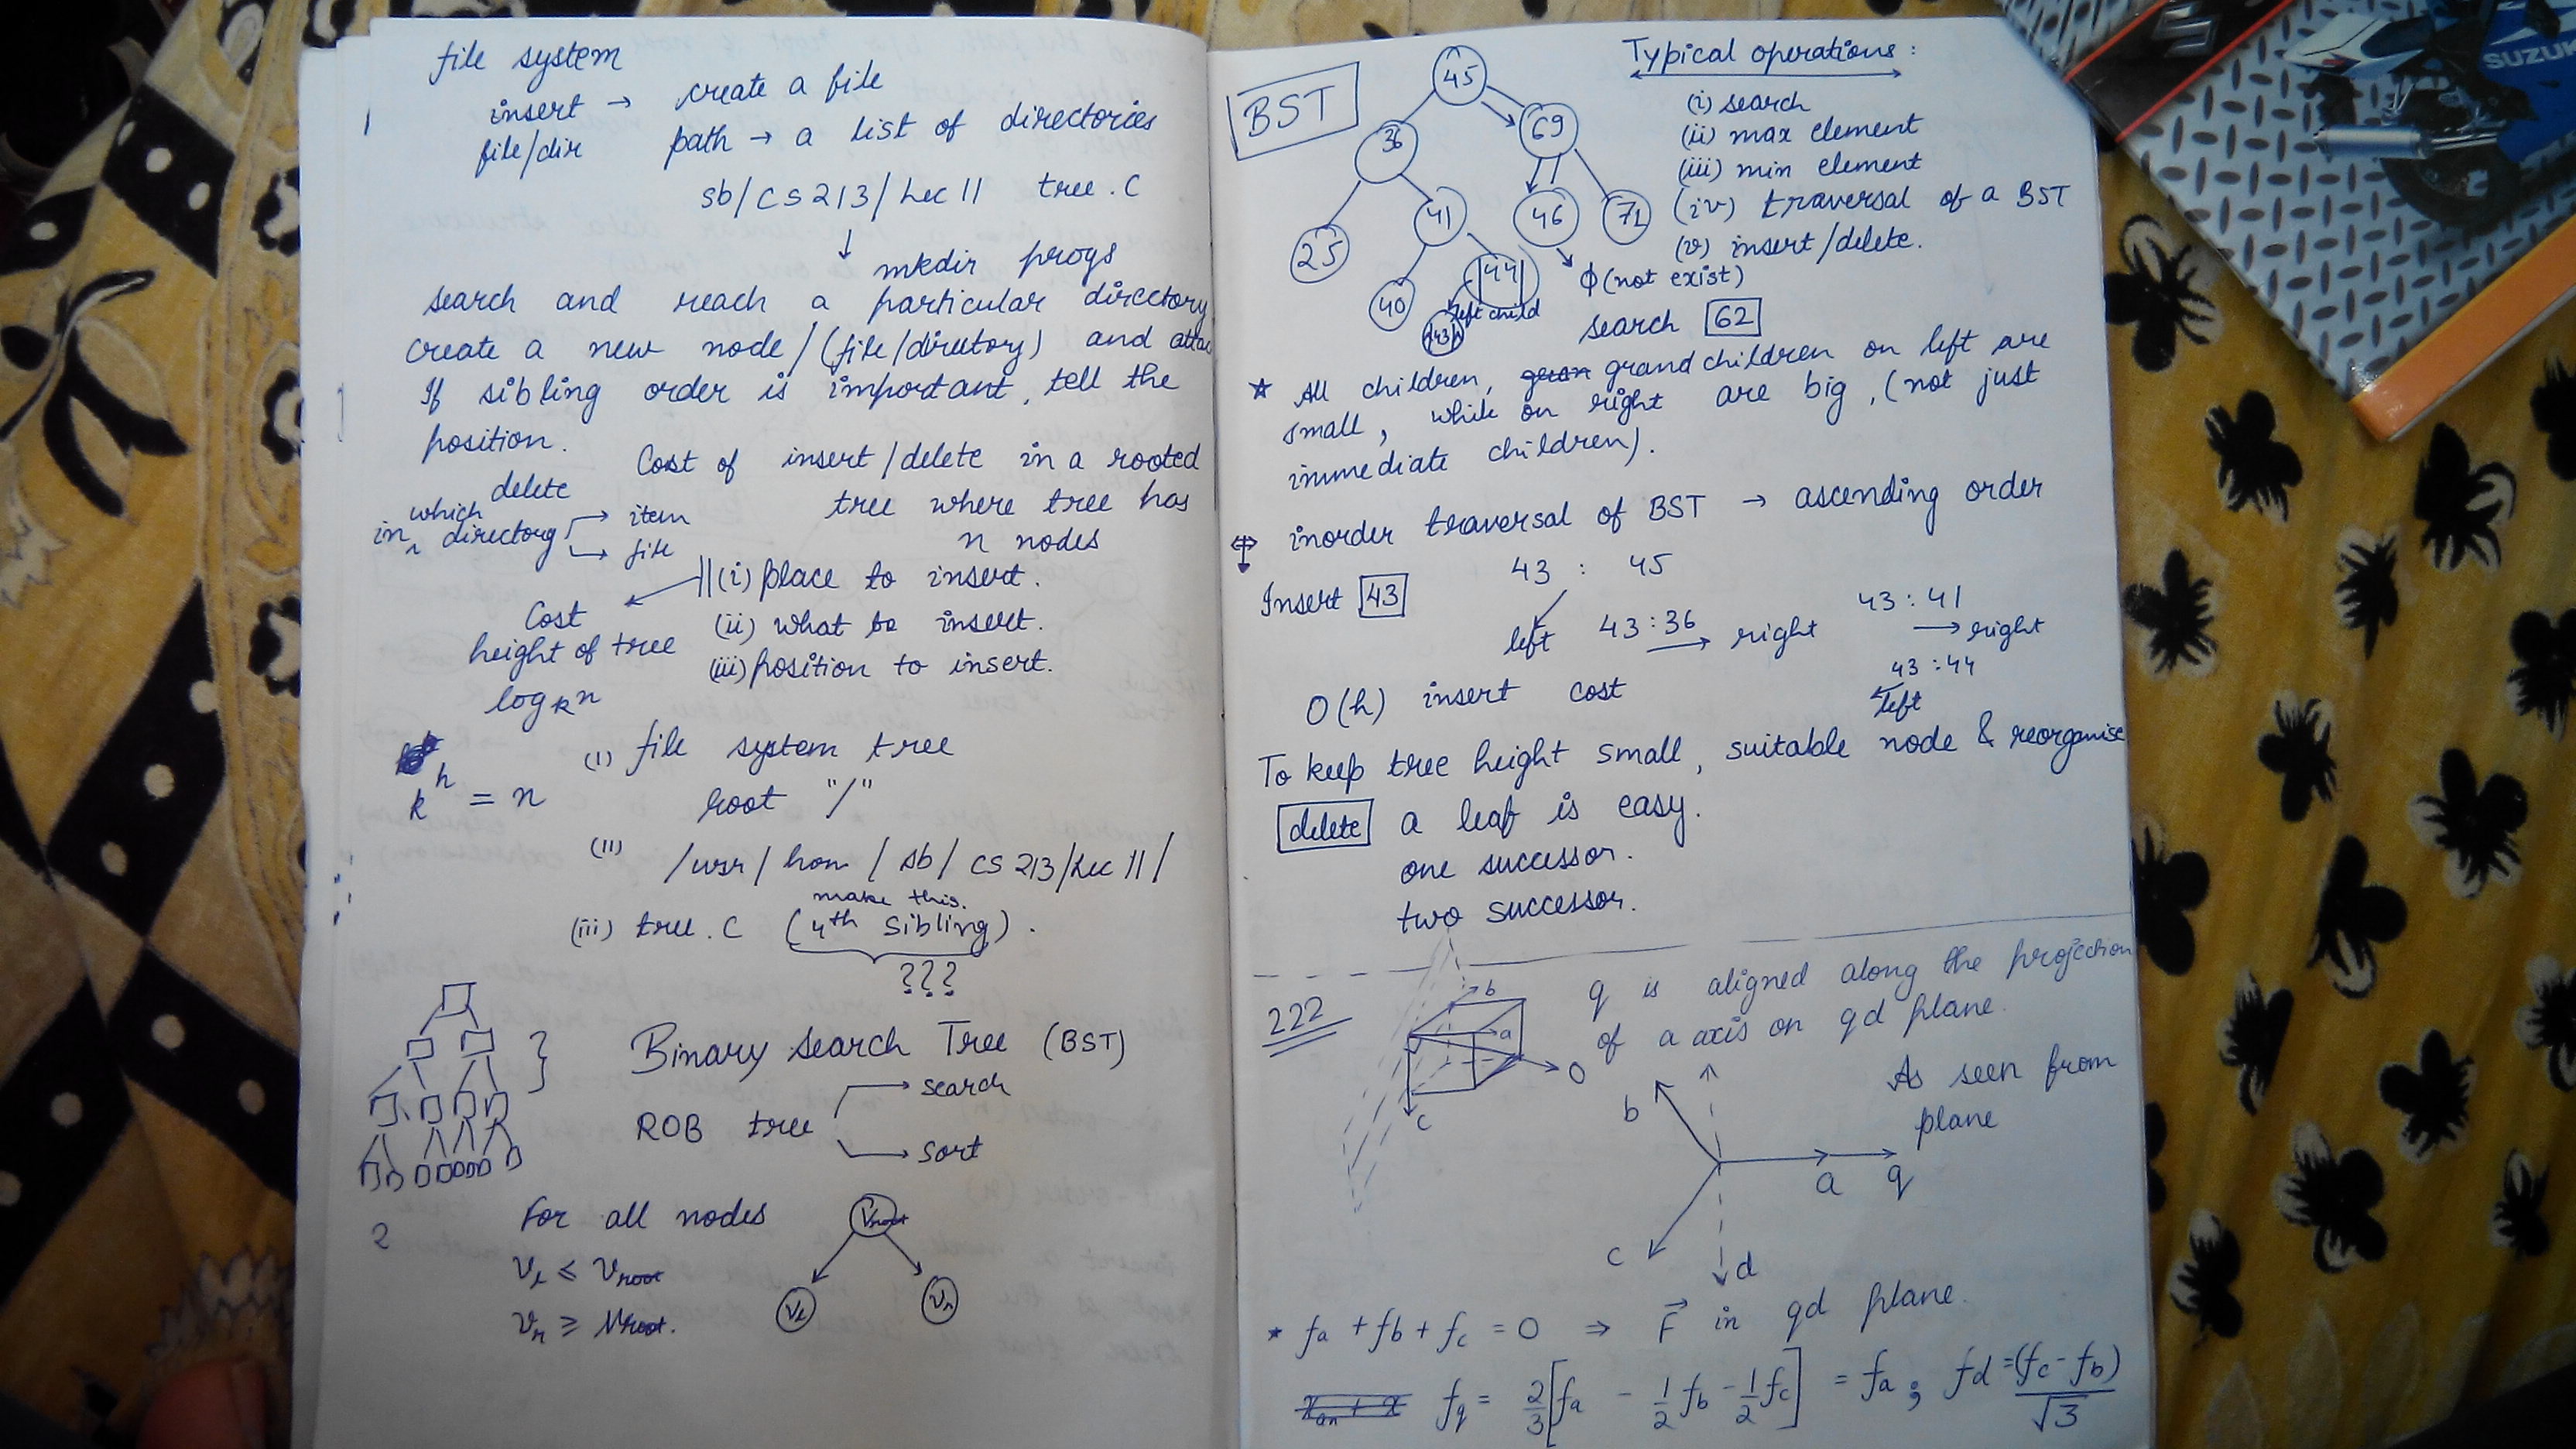 file system
insert → create a file
file/dir path → a list of directories
sb/CS213/Lec11 tree.C
↓ mkdir progs
search and reach a particular directory
create a new node/(file/directory) and attac
If sibling order is important, tell the
position.
Cost of insert/delete in a rooted
tree where tree has
n nodes
delete
in which directory → item
→ file
(i) place to insert.
(ii) what to insert.
(iii) position to insert.
Cost
height of tree
log k n
k^h = n
(i) file system tree
root "/"
(ii) /usr/hom/sb/CS213/Lec11/
make this.
(iii) tree.C (4th sibling).
???
Binary Search Tree (BST)
ROB tree → search
→ sort
2
for all nodes
v_l ≤ v_root
v_r ≥ v_root.
v_root
v_l v_r
BST
45
36 69
25 41 46 71
40 44
43
left child
ϕ (not exist)
Typical operations:
(i) search
(ii) max element
(iii) min element
(iv) traversal of a BST
(v) insert/delete.
search 62
☆ All children, grandchildren on left are
small, while on right are big, (not just
immediate children).
inorder traversal of BST → ascending order
Insert 43
43 : 45
left
43:36 → right
43:41
→ right
43:44
left
O(h) insert cost
To keep tree height small, suitable node & reorganise
delete a leaf is easy.
one successor.
two successor.
222
b
a
O
c
q is aligned along the projection
of a axis on qd plane.
As seen from
plane
b
a q
c
d
* fa + fb + fc = 0 ⇒ F⃗ in qd plane.
fq = 2/3 [fa - 1/2 fb - 1/2 fc] = fa ; fd = (fc - fb)/√3
SUZUK